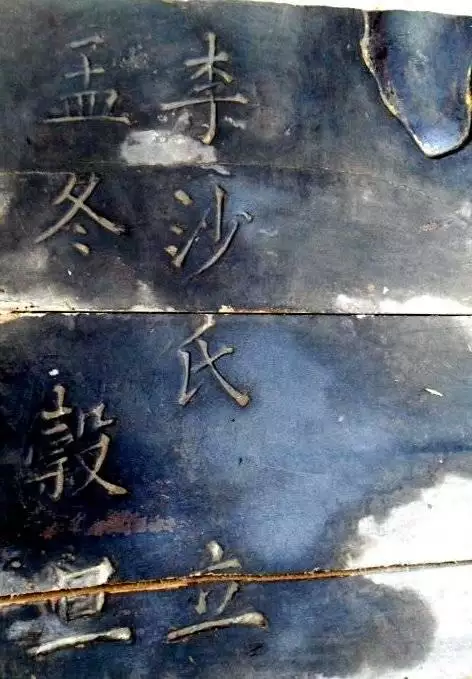 李沙氏立
孟冬穀旦